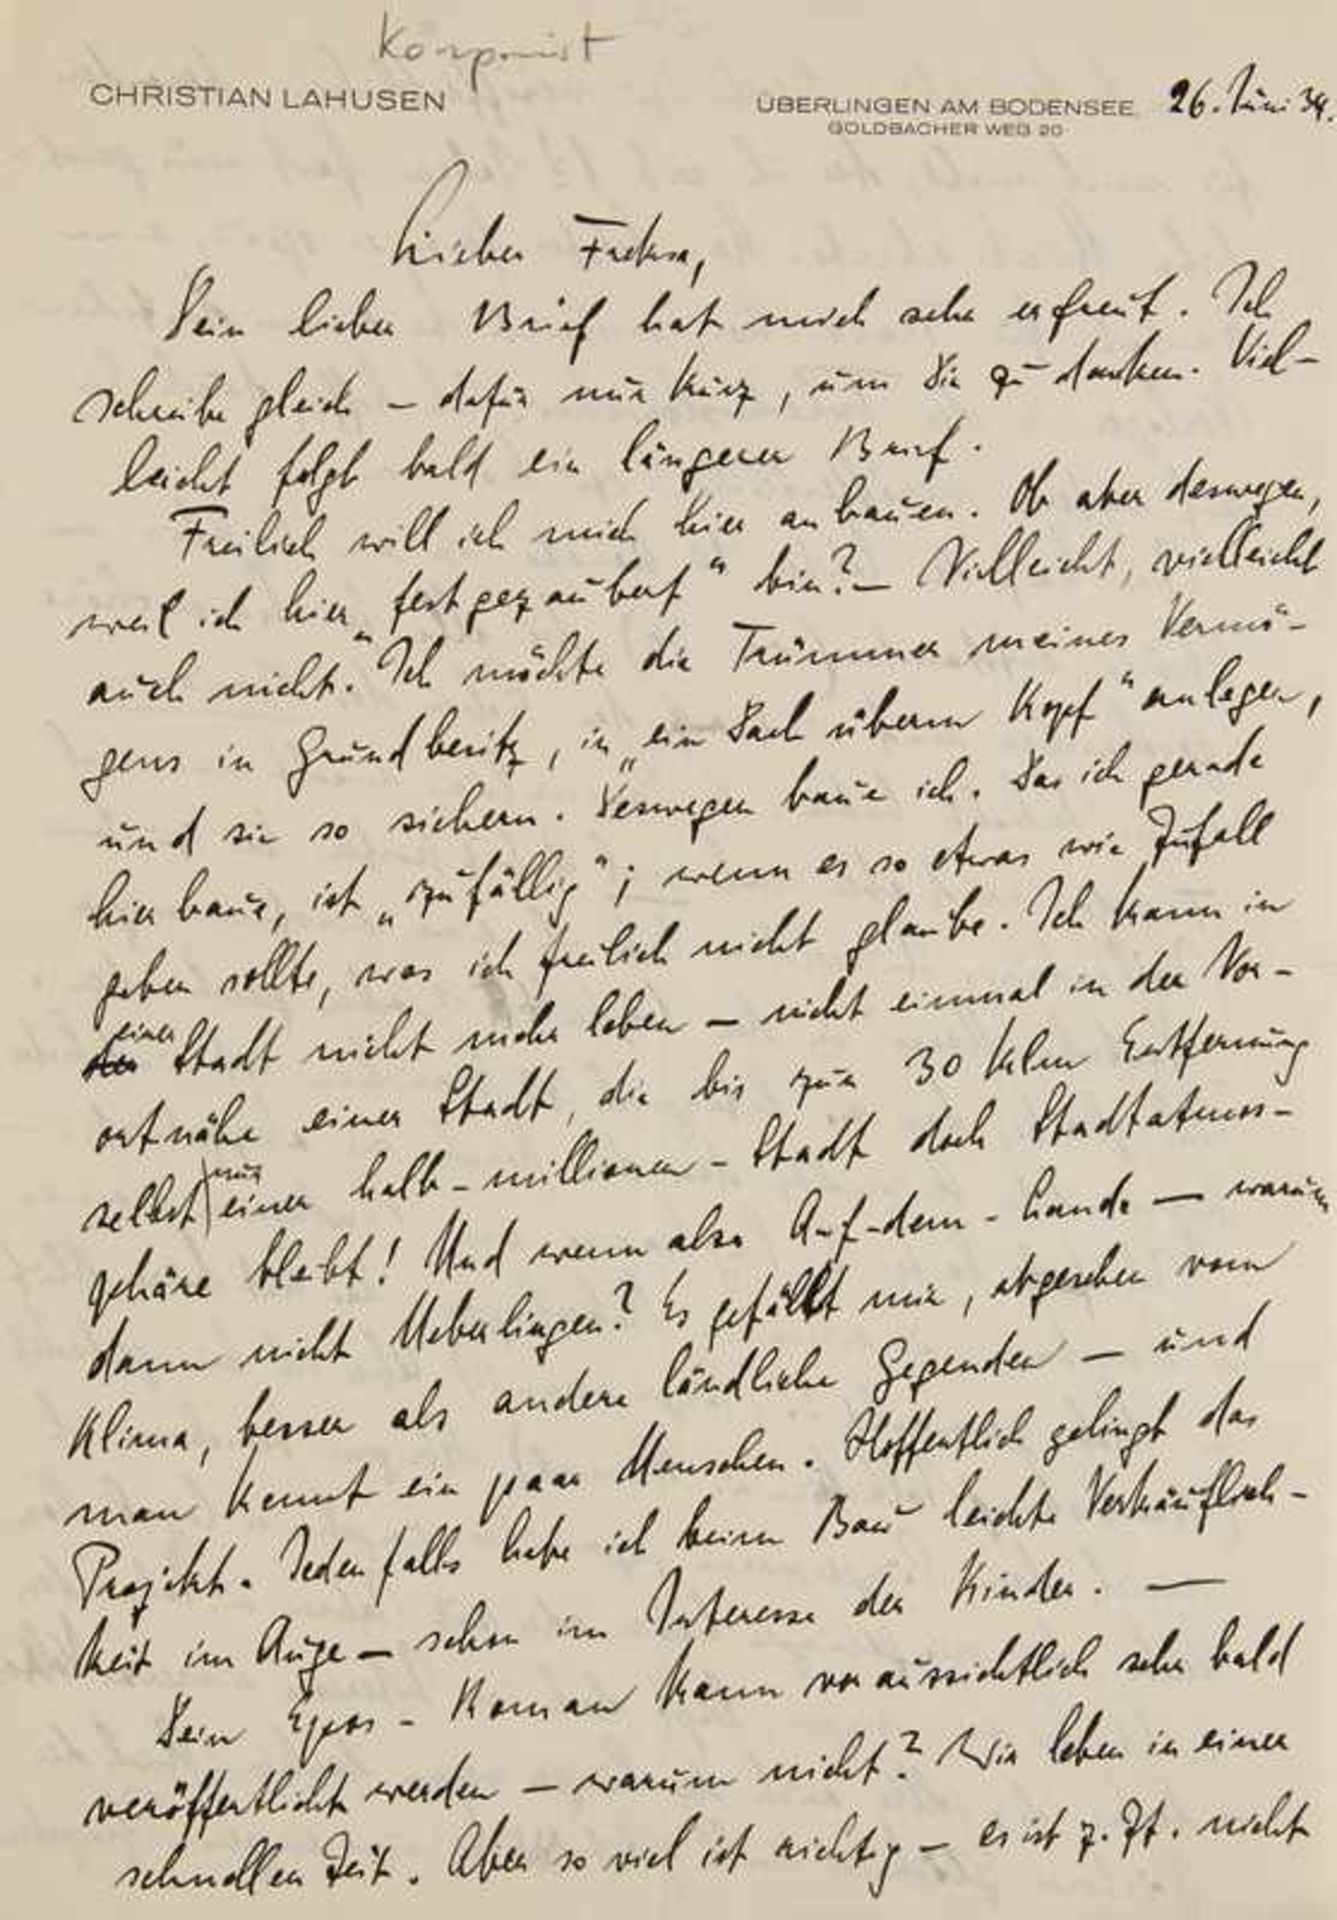 Komponist
CHRISTIAN LAHUSEN
ÜBERLINGEN AM BODENSEE, 26. Juni 34.
GOLDBACHER WEG 20
Lieber Freksa,
Dein lieber Brief hat mich sehr erfreut. Ich
schreibe gleich – dafür nur kurz, um Dir zu danken. Viel-
leicht folgt bald ein längerer Brief.
Freilich will ich mich hier anbauen. Ob aber deswegen,
weil ich hier „festgezaubert" bin? – Vielleicht, vielleicht
auch nicht. Ich möchte die Trümmer meines Vermö-
gens in Grundbesitz, in „ein Dach überm Kopf" anlegen,
und sie so sichern. Deswegen baue ich. Das ich gerade
hier baue, ist „zufällig"; wenn es so etwas wie Zufall
geben sollte, was ich freilich nicht glaube. Ich kann in
einer Stadt nicht mehr leben – nicht einmal in der Vor-
ortnähe einer Stadt, die bis zur 30 klm Entfernung
selbst nur einer halb-millionen-Stadt doch Stadtatmos-
phäre bleibt! Und wenn also Auf-dem-Lande — warum
dann nicht Ueberlingen? Es gefällt mir, abgesehen vom
Klima, besser als andere ländliche Gegenden — und
man kennt ein paar Menschen. Hoffentlich gelingt das
Projekt. Jedenfalls habe ich beim Bau leichte Verkäuflich-
keit im Auge – schon im Interesse der Kinder. —
Dein Epos-Roman kann voraussichtlich sehr bald
veröffentlicht werden – warum nicht? Wir leben in einer
schnellen Zeit. Aber so viel ist richtig – es ist z. Zt. nicht